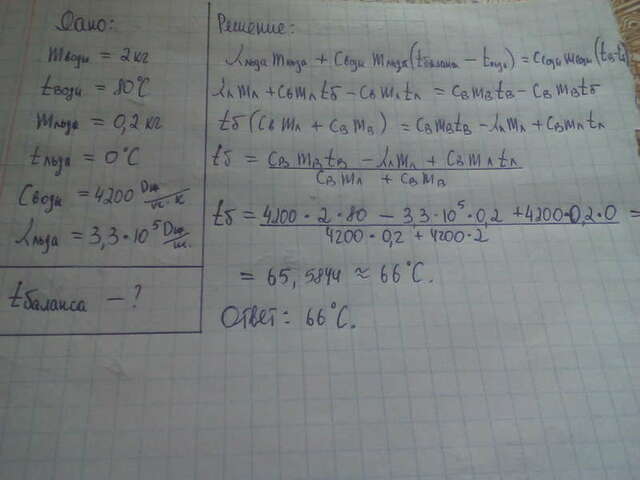 Дано:
mводи = 2 кг
tводи = 80°C
mльда = 0,2 кг
tльда = 0°C
Cводи = 4200 Дж/кг·К
λльда = 3,3·10⁵ Дж/кг.
tбаланса – ?
Решение:
λльда mльда + Cводи mльда (tбаланса – tльда) = Cводи mводи (tв-t
λл mл + Cв mл tб – Cв mл tл = Cв mв tв – Cв mв tб
tб (Cв mл + Cв mв) = Cв mв tв – λл mл + Cв mл tл
tб = Cв mв tв – λл mл + Cв mл tл / Cв mл + Cв mв
tб = 4200·2·80 – 3,3·10⁵·0,2 + 4200·0,2·0 / 4200·0,2 + 4200·2 =
= 65,5844 ≈ 66°C.
Ответ: 66°C.